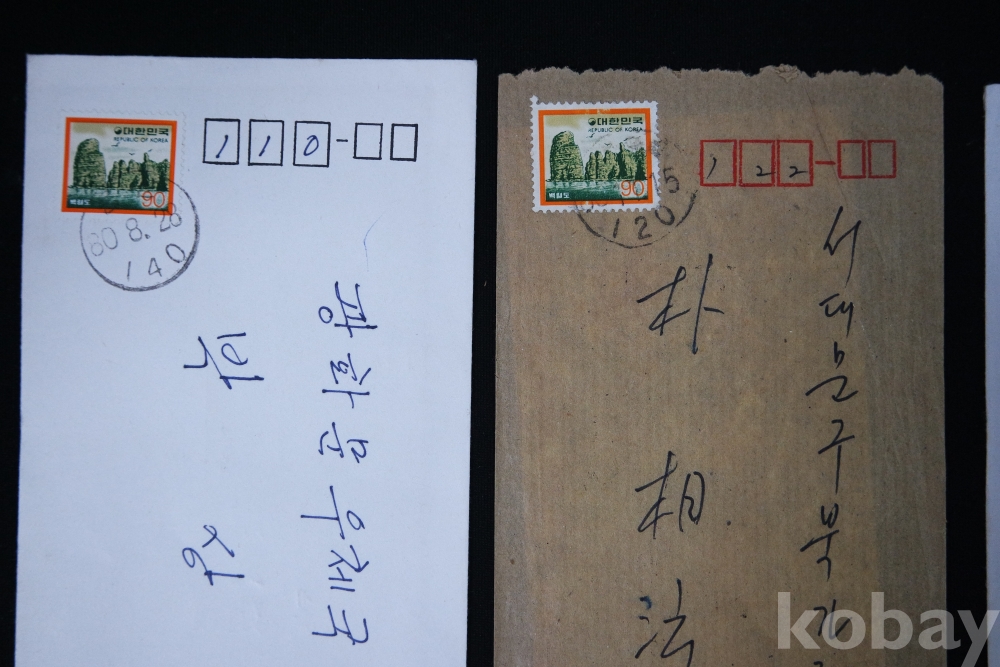 대한민국
REPUBLIC OF KOREA
90
백령도
80 8.28
140
110-
광화문우체국
대한민국
REPUBLIC OF KOREA
90
백령도
15
120
122-
서대문구북가
朴相法
kobay